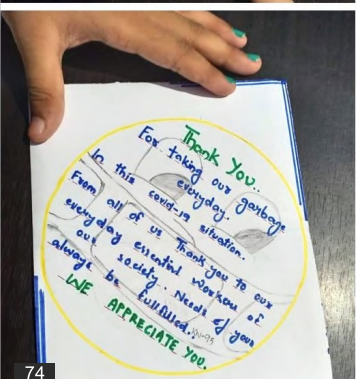 Thank You..
For taking our garbage
everyday.
In this covid-19 situation.
From all of us Thank you to our
everyday essential workers of
our society. Needs of your
always be fullfilled.
WE APPRECIATE YOU.
KN-95
74